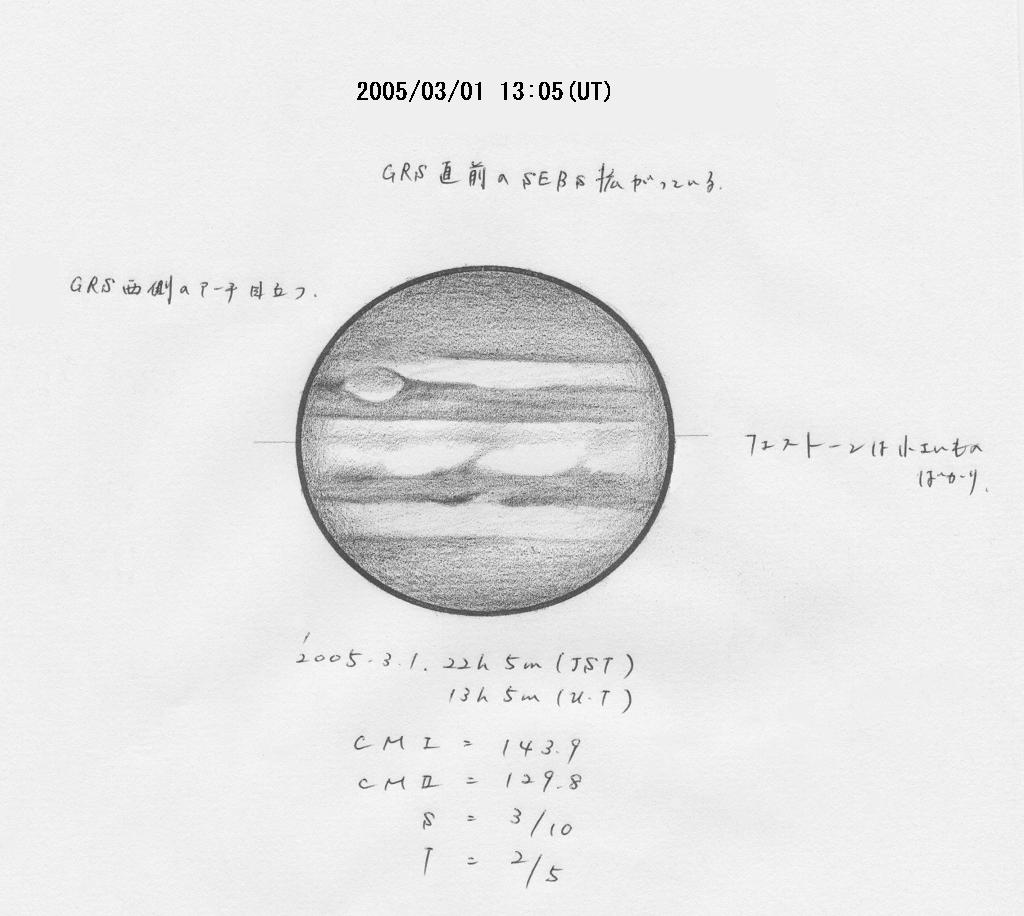 2005/03/01 13:05(UT)
GRS直前のSEBs拡がっている.
GRS西側のアーチ目立つ.
フェストーンは小さいもの
ばかり.
'2005.3.1. 22h 5m (JST)
13h 5m (U.T)
CM I = 143.9
CM II = 129.8
S = 3/10
T = 2/5